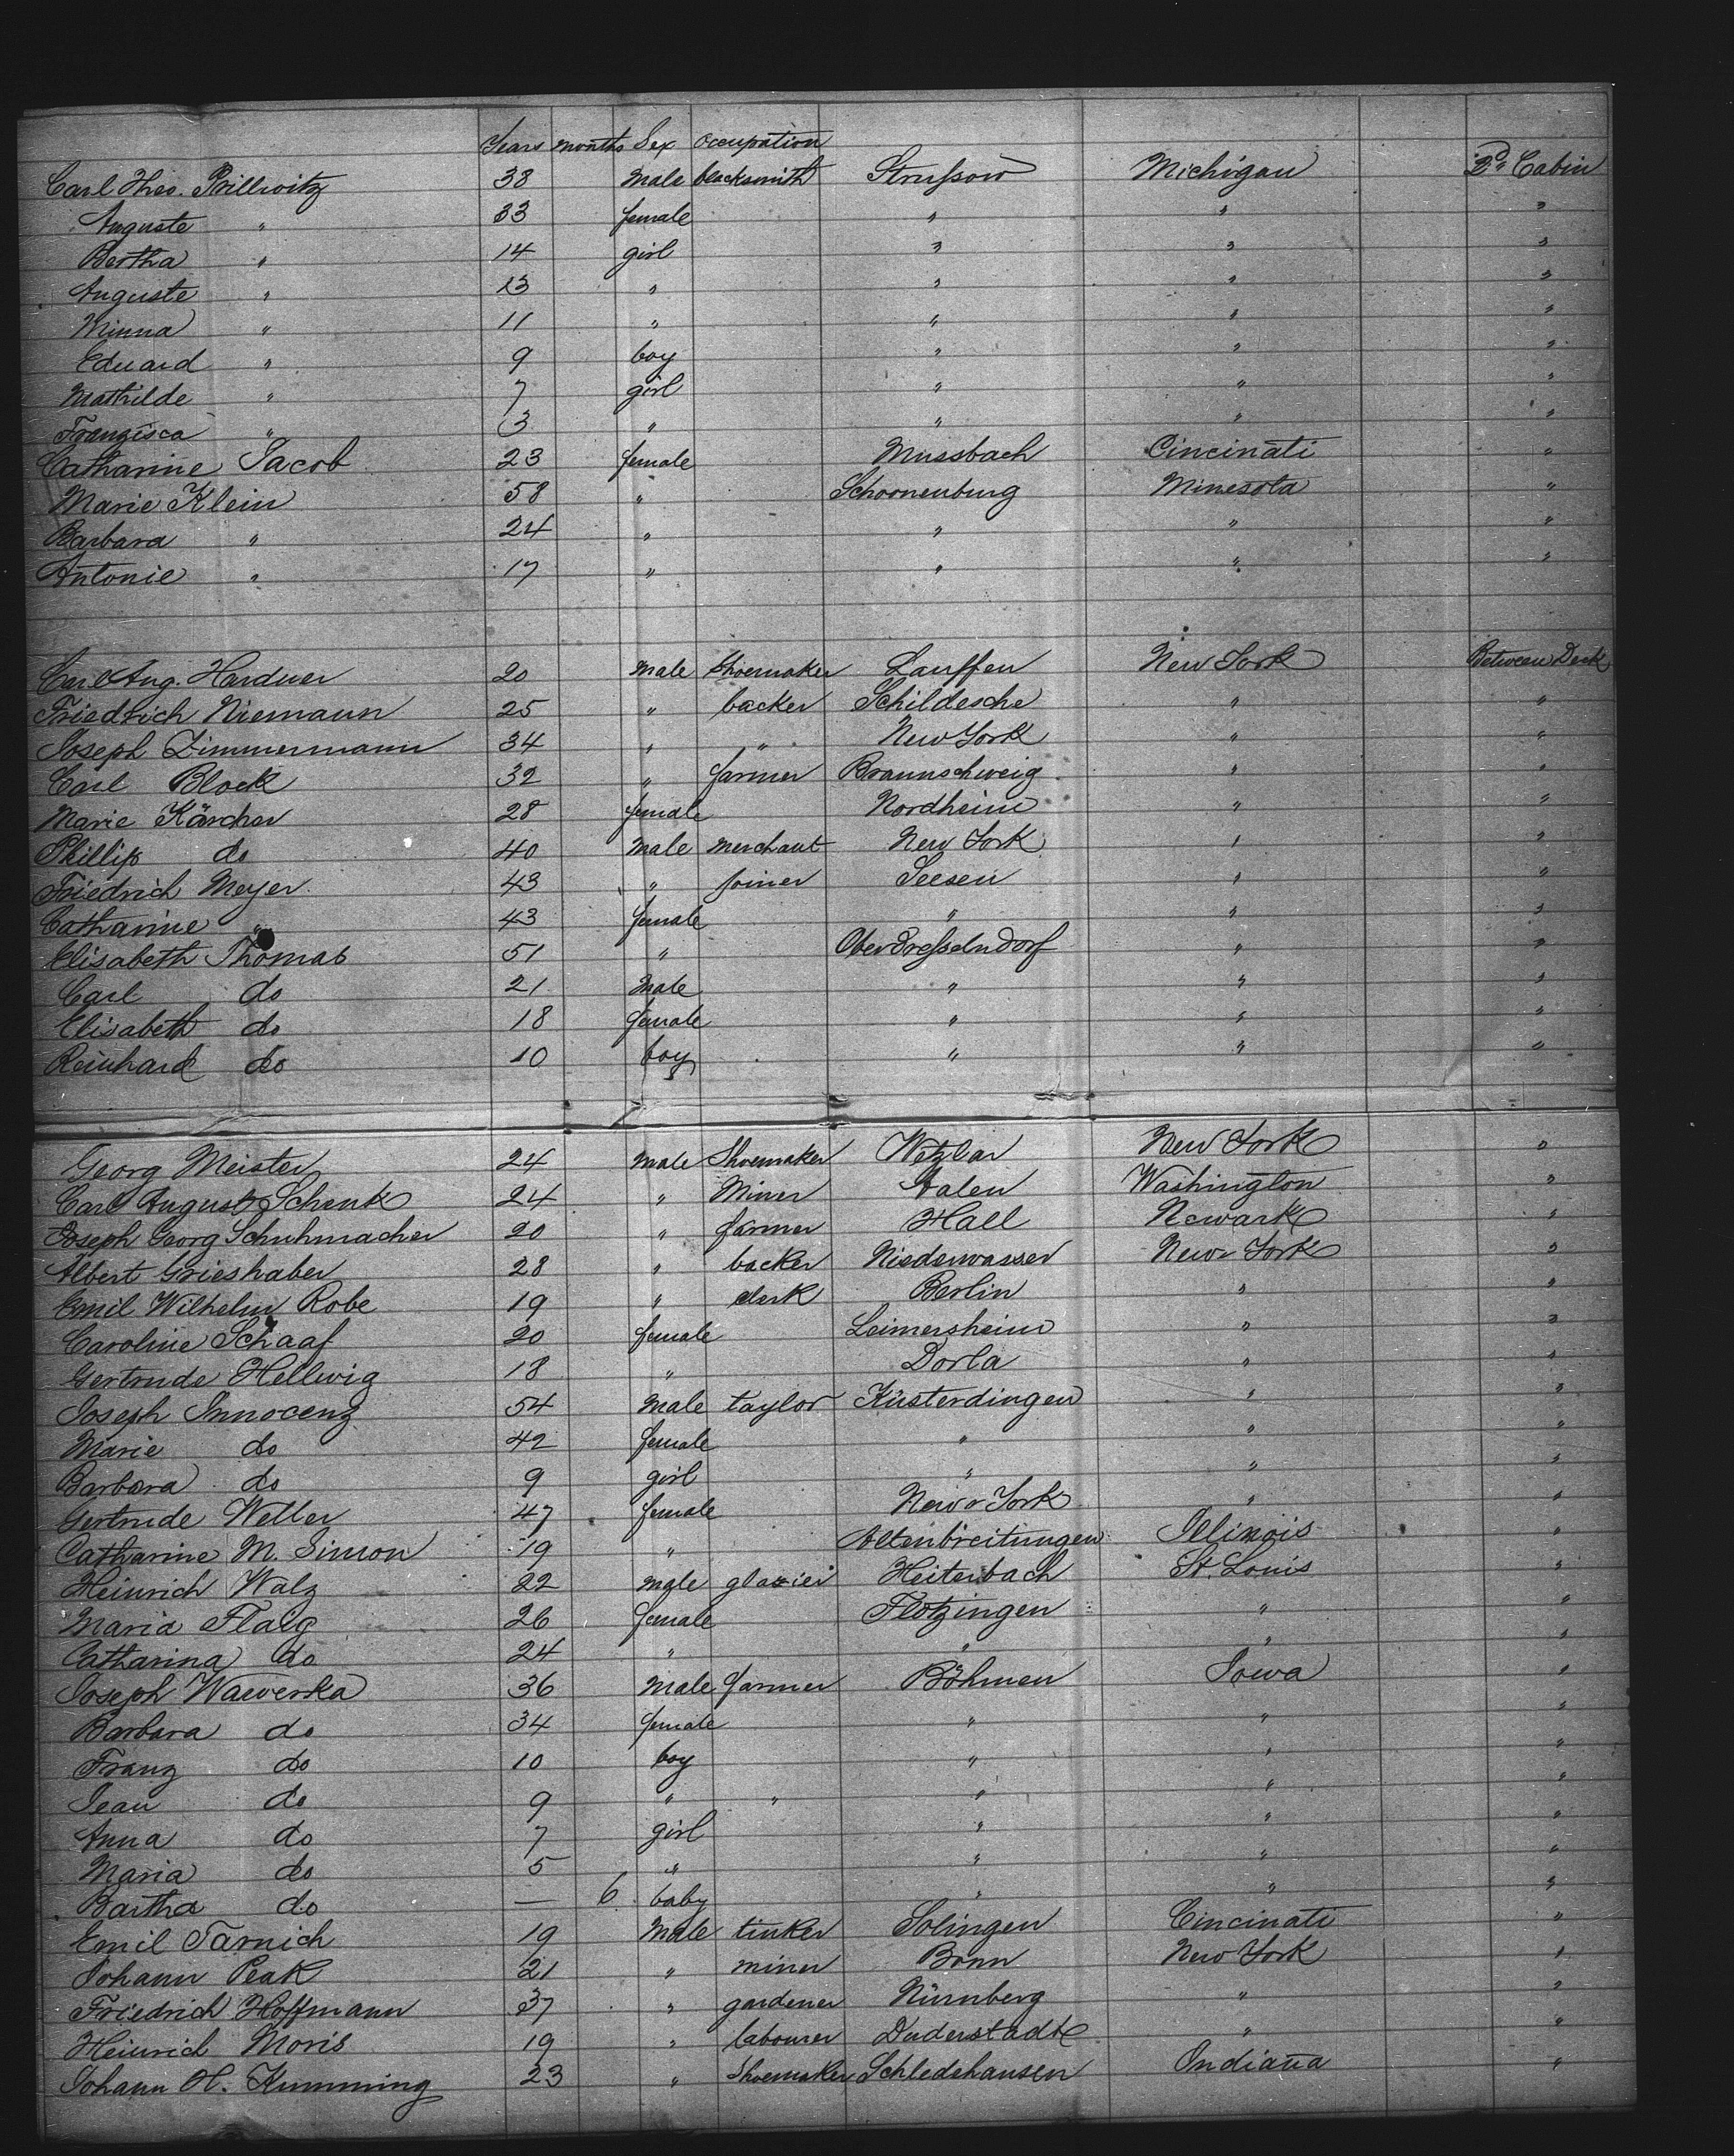 Years months Sex occupation
Carl Theo. Prillwitz 38 Male blacksmith Strußow Michigan 2d Cabin
Auguste " 33 female " " "
Bertha " 14 girl " " "
Auguste " 13 " " " "
Minna " 11 " " " "
Eduard " 9 boy " " "
Mathilde " 7 girl " " "
Franzisca " 3 " " " "
Catharine Jacob 23 female Mussbach Cincinati "
Marie Klein 58 " Schoonenburg Minesota "
Barbara " 24 " " " "
Antonie " 17 " " " "
Carl Aug. Harduer 20 Male Shoemaker Lauffen New York Between Deck
Friedrich Niemann 25 " backer Schildesche " "
Joseph Zimmermann 34 " " New York " "
Carl Block 32 " farmer Braunschweig " "
Marie Kärcher 28 female Nordheim " "
Phillip do 40 Male merchant New York " "
Friedrich Meyer 43 " joiner Seesen " "
Catharine " 43 female " " "
Elisabeth Thomas 51 " Oberdresselndorf " "
Carl do 21 Male " " "
Elisabeth do 18 female " " "
Reinhard do 10 boy " " "
Georg Meister 24 Male Shoemaker Wetzlar New York "
Carl August Schenk 24 " Miner Aalen Washington "
Joseph Georg Schuhmacher 20 " farmer Hall Newark "
Albert Grieshaber 28 " backer Niederwasser New York "
Emil Wilhelm Robe 19 " clerk Berlin " "
Caroline Schaaf 20 female Leimersheim " "
Gertrude Hellwig 18 " Dorla " "
Joseph Innocenz 54 Male taylor Küsterdingen " "
Marie do 42 female " " "
Barbara do 9 girl " " "
Gertrude Weller 47 female New York " "
Catharine M. Simon 19 " Altenbreitungen Illinois "
Heinrich Walz 22 Male glazier Heiterbach St. Louis "
Maria Flaig 26 female Flötzingen " "
Catharina do 24 " " " "
Joseph Wawerka 36 Male farmer Böhmen Iowa "
Barbara do 34 female " " "
Franz do 10 boy " " "
Jean do 9 " " " " "
Anna do 7 girl " " "
Maria do 5 " " " "
Bartha do — 6 baby " " "
Emil Tarnich 19 Male tinker Solingen Cincinati "
Johann Peak 21 " miner Bonn New York "
Friedrich Hoffmann 37 " gardener Nürnberg " "
Heinrich Moris 19 " labourer Duderstadt " "
Johann H. Kumming 23 " Shoemaker Schledehausen Indiana "